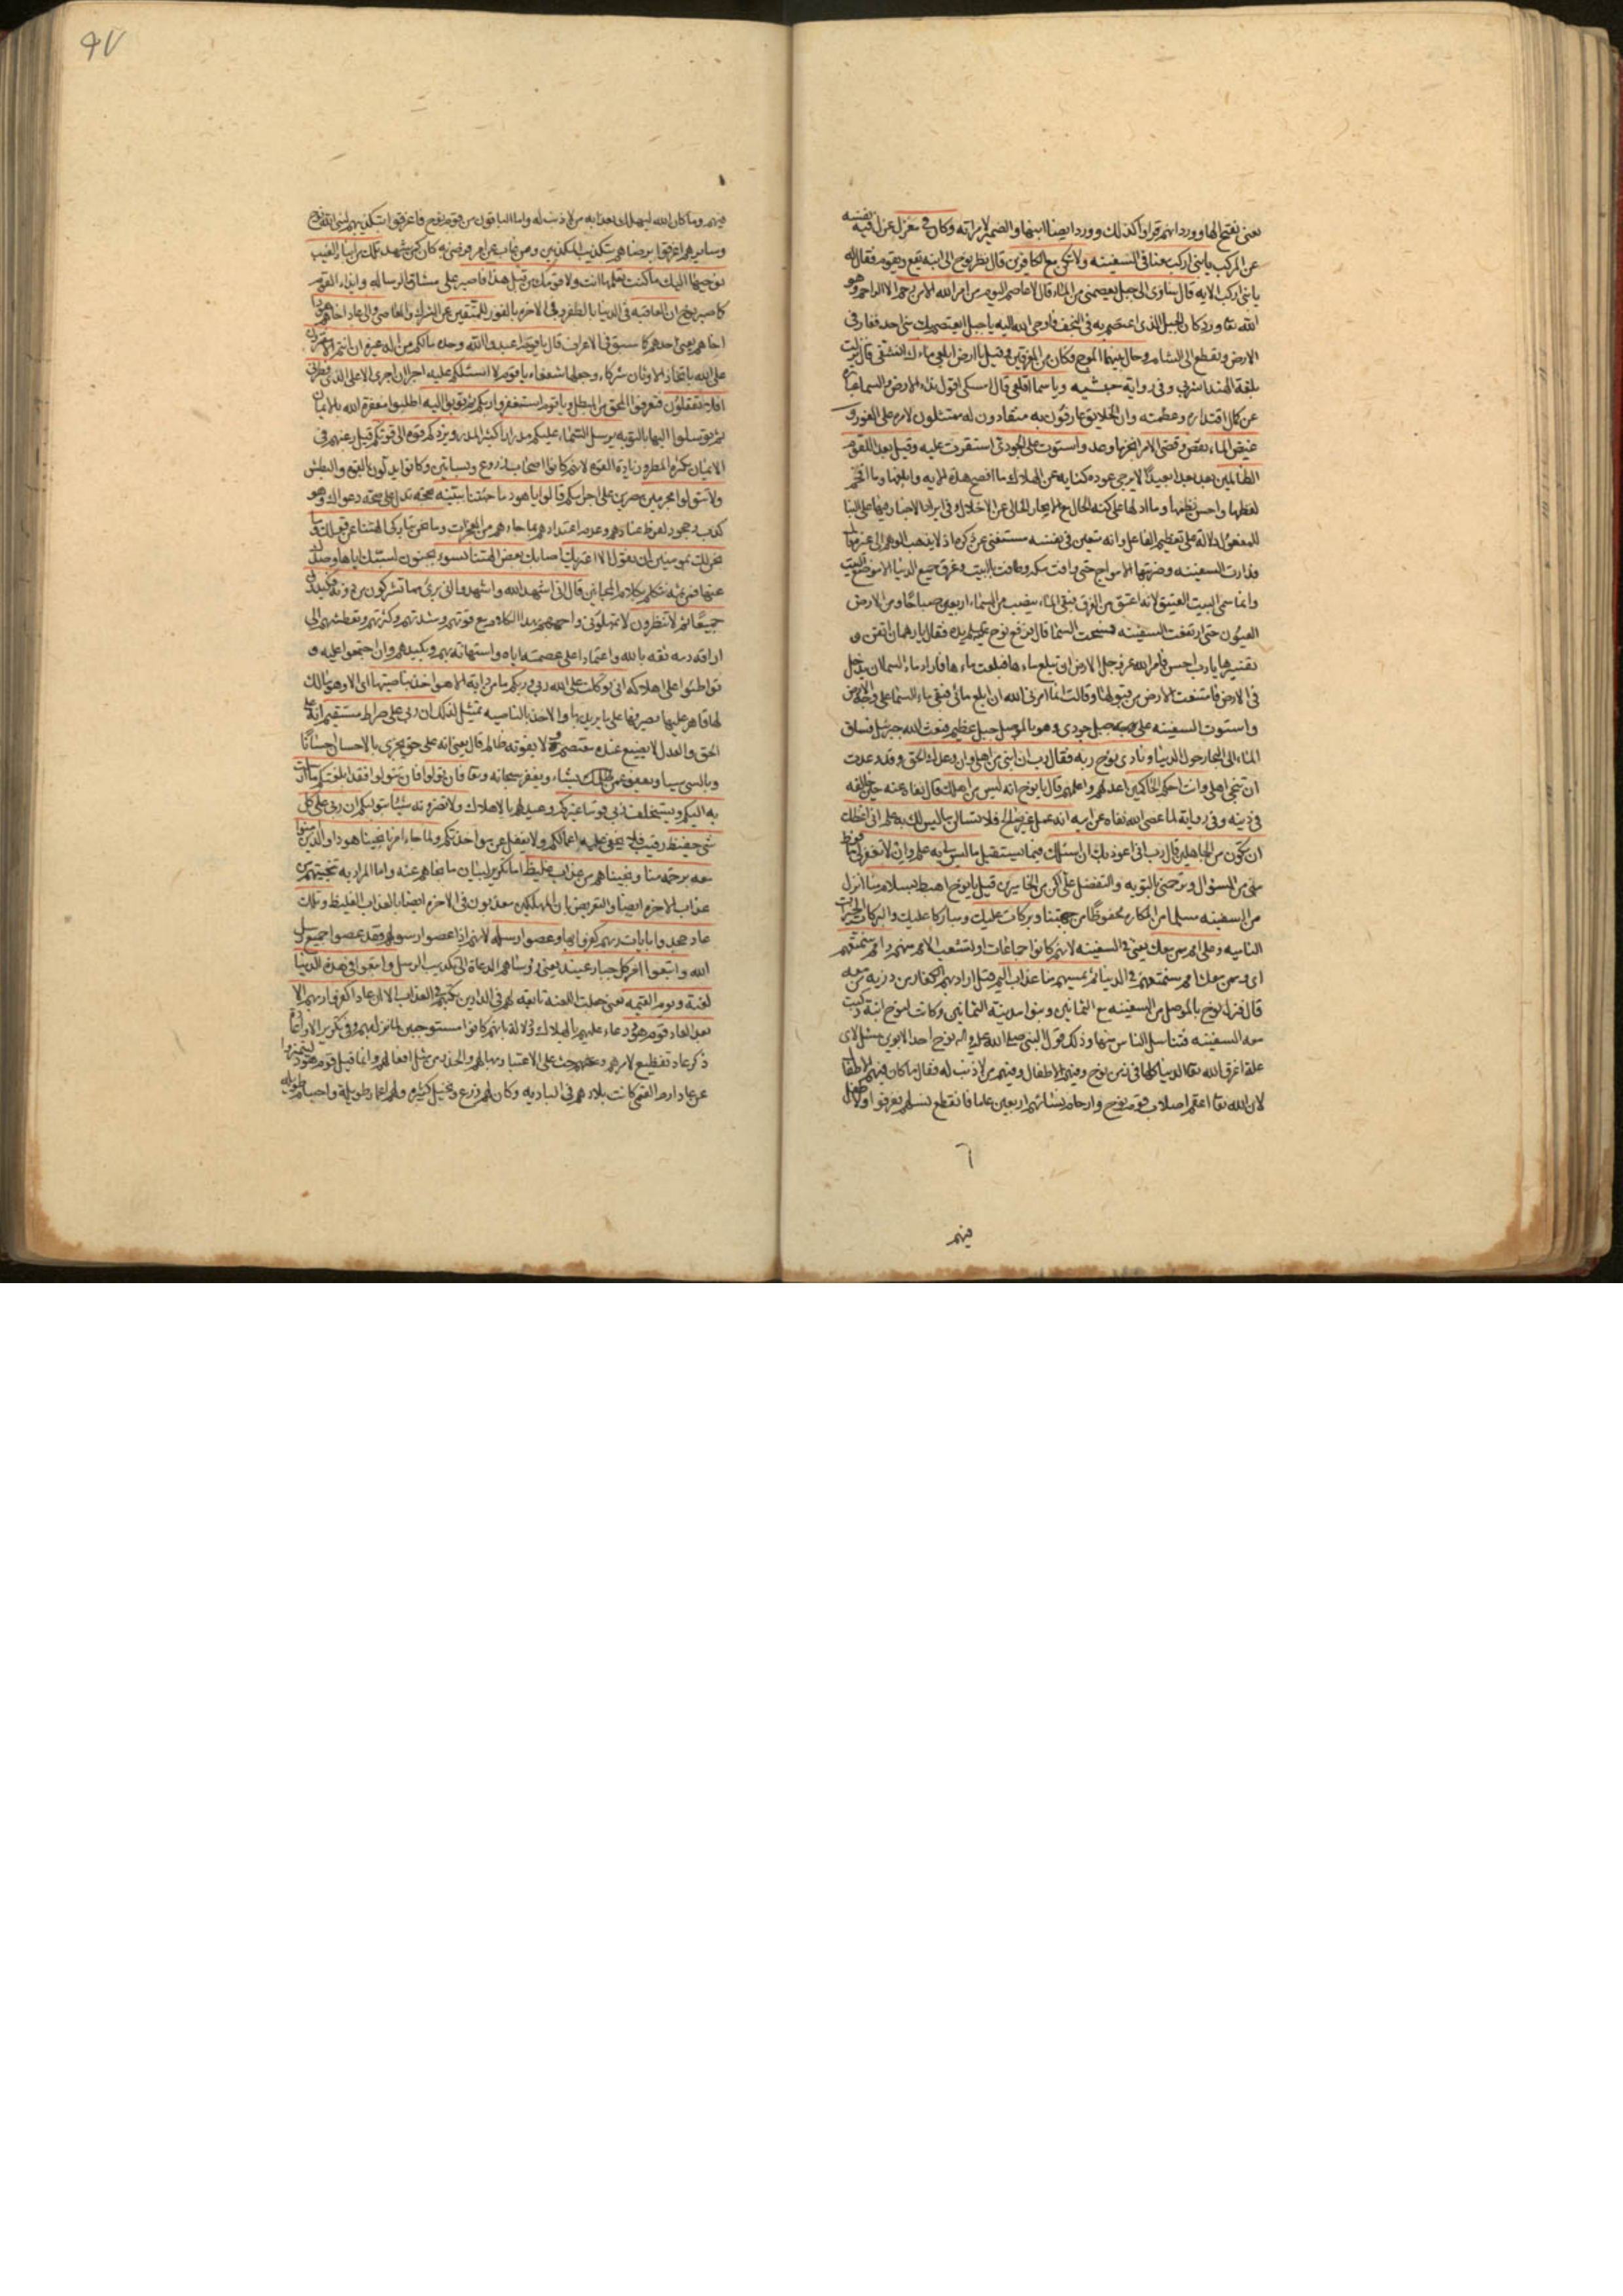 يعنى بفتح الها وورد انهم قراوا كذلك وورد ايضا ابنها والضمير لامراته وكان فى معزل عزل فيه نفسه
عن المركب يا بنى اركب معنا فى السفينه ولا تكن مع الكافرين قال نظر نوح الى ابنه يقع ويقوم فقال له
يا بنى اركب الايه قال ساوى الى جبل يعصمنى من الماء قال لا عاصم اليوم من امر الله الا من رحم الا الراحم وهو
الله تعا ورد كان الجبل الذى اعتصم به فى النجف فاوحى الله اليه يا جبل ايعتصم بك منى احد فغار فى
الارض وتقطع الى الشام وحال بينهما الموج فكان من المغرقين وقيل يا ارض ابلعى ماءك انشفى قال نزلت
بلغة الهند اشربى وفى رواية حبشيه ويا سما اقلعى قال امسكى اقول نداء الارض والسما عبارة
عن كمال اقتداره وعظمته وان الخلايق عارفون به منقادون له ممتثلون لامره على الفور و
غيض الماء نقص وقضى الامر انجز ما وعد واستوت على الجودى استقرت عليه وقيل بعدا للقوم
الظالمين بعد بعدا بعيدا لا يرجى عوده كنايه عن الهلاك ما افصح هذه الايه وابلغها وما افخم
لفظها واحسن نظمها وما ادلها على كنه الحال مع الايجاز الخالى عن الاخلال وفى ايراد الاخبار فيها على البنا
للمفعول دلالة على تعظيم الفاعل وانه متعين فى نفسه مستغنى عن ذكره اذ لا يذهب الوهم الى غيره قال
فدارت السفينه وضربتها الامواج حتى وافت مكه وطافت بالبيت وغرق جميع الدنيا الا موضع البيت
وانما سمى البيت العتيق لانه اعتق من الغرق فبقى الماء ينصب من السماء اربعين صباحا ومن الارض
العيون حتى ارتفعت السفينه فمسحت السما قال فرفع نوح يده فقال يا رهمان اتقن و
تفسيرها يا رب احسن فامر الله عز وجل الارض ان تبلع ماءها فبلعت ماءها فاراد ماء السما ان يدخل
فى الارض فامتنعت الارض من قبولها وقالت انما امرنى الله ان ابلع مائى فبقى ماء السما على وجه الارض
واستوت السفينه على جبل جودى وهو بالموصل جبل عظيم فبعث الله جبرئيل فساق
الماء الى البحار حول الدنيا ونادى نوح ربه فقال رب ان ابنى من اهلى وان وعدك الحق وقد وعدت
ان تنجى اهلى وانت احكم الحاكمين اعدلهم واعلمهم قال يا نوح انه ليس من اهلك قال نفاه عنه حين خالفه
فى دينه وفى رواية لما عصى الله نفاه عن ابيه انه عمل غير صالح فلا تسالن ما ليس لك به علم انى اعظك
ان تكون من الجاهلين قال رب انى اعوذ بك ان اسئلك فيما يستقبل ما ليس لى به علم وان لا تغفر لى ما فرط
منى من السؤال وترحمنى بالتوبه والتفضل على اكن من الخاسرين قيل يا نوح اهبط بسلام منا انزل
من السفينه مسلما من المكاره محفوظا من جهتنا وبركات عليك ومباركا عليك والبركات الخيرات
الناميه وعلى امم ممن معك يعنى فى السفينه لانهم كانوا جماعات او لتشعب الامم منهم وامم سنمتعهم
اى وممن معك امم سنمتعهم فى الدنيا ثم يمسهم منا عذاب اليم قيل اراد بهم الكفار من ذرية من معه
قال فنزل نوح بالموصل من السفينه مع الثمانين وبنوا مدينة الثمانين وكانت لنوح ابنة ركبت
معه السفينه فتناسل الناس منها وذلك قول النبى صلى الله عليه واله نوح احد الابوين سئل لاى
علة اغرق الله تعا الدنيا كلها فى زمن نوح وفيهم الاطفال وفيهم من لا ذنب له فقال ما كان فيهم الاطفال
لان الله تعا اعقم اصلاب قوم نوح وارحام نسائهم اربعين عاما فانقطع نسلهم فغرقوا ولا طفل
٦
فيهم
٩٧
فيهم وما كان الله ليهلك بعذابه من لا ذنب له واما الباقون من قوم نوح فاغرقوا بتكذيبهم لنبى الله نوح
وسايرهم اغرقوا برضاهم بتكذيب المكذبين ومن غاب عن امر فرضى به كان كمن شهده تلك من انباء الغيب
نوحيها اليك ما كنت تعلمها انت ولا قومك من قبل هذا فاصبر على مشاق الرساله وايذاء القوم
كما صبر نوح ان العاقبه فى الدنيا بالظفر وفى الاخره بالفوز للمتقين عن الشرك والمعاصى والى عاد اخاهم هودا
اخاهم يعنى احدهم كما سبق فى الاعراف قال يا قوم اعبدوا الله وحده ما لكم من اله غيره ان انتم الا مفترون
على الله باتخاذ الاوثان شركاء وجعلها شفعاء يا قوم لا اسئلكم عليه اجرا ان اجرى الا على الذى فطرنى
افلا تعقلون فتعرفوا المحق من المبطل ويا قوم استغفروا ربكم ثم توبوا اليه اطلبوا مغفرة الله بالايمان
ثم توسلوا اليها بالتوبه يرسل السماء عليكم مدرارا كثير الدر ويزدكم قوة الى قوتكم قيل رغبهم فى
الايمان بكثرة المطر وزيادة القوه لانهم كانوا اصحاب زروع وبساتين وكانوا يدلون بالقوه والبطش
ولا تتولوا مجرمين مصرين على اجرامكم قالوا يا هود ما جئتنا ببينه بحجه تدل على صحة دعواك وهو
كذب وجحود لفرط عنادهم وعدم اعتدادهم بما جاءهم من المعجزات وما نحن بتاركى الهتنا عن قولك وما
نحن لك بمومنين ان نقول الا اعتراك اصابك بعض الهتنا بسوء بجنون لسبك اياها وصدك
عنها فمن ثم تتكلم بكلام المجانين قال انى اشهد الله واشهدوا انى برئ مما تشركون من دونه فكيدونى
جميعا ثم لا تنظرون لا تمهلونى واجههم بهذا الكلام مع قوتهم وشدتهم وكثرتهم وتعطشهم الى
اراقة دمه ثقه بالله واعتمادا على عصمته اياه واستهانة بهم وبكيدهم وان اجتمعوا عليه و
تواطئوا على اهلاكه انى توكلت على الله ربى وربكم ما من دابة الا هو اخذ بناصيتها اى الا وهو مالك
لها قاهر عليها يصرفها على ما يريد بها والاخذ بالناصيه تمثيل لذلك ان ربى على صراط مستقيم انه على
الحق والعدل لا يضيع عنده معتصم ولا يفوته ظالم قال يعنى انه على حق يجزى بالاحسان احسانا
وبالسئ سيئا ويعفو عمن يشاء ويغفر سبحانه وتعا فان تولوا فان تتولوا فقد ابلغتكم ما ارسلت
به اليكم ويستخلف ربى قوما غيركم وعيد لهم بالاهلاك ولا تضرونه شيئا بتوليكم ان ربى على كل
شئ حفيظ رقيب فلا يخفى عليه اعمالكم ولا يغفل عن مواخذتكم ولما جاء امرنا نجينا هودا والذين امنوا
معه برحمة منا ونجيناهم من عذاب غليظ اما تكرير لبيان ما نجاهم عنه واما المراد به تنجيتهم من
عذاب الاخره ايضا والتعريض بان المهلكين معذبون فى الاخره ايضا بالعذاب الغليظ وتلك
عاد جحدوا بايات ربهم كفروا بها وعصوا رسله لانهم اذا عصوا رسولهم فقد عصوا جميع رسل
الله واتبعوا امر كل جبار عنيد يعنى رؤساهم الدعاة الى تكذيب الرسل واتبعوا فى هذه الدنيا
لعنة ويوم القيمه يعنى جعلت اللعنه تابعة لهم فى الدارين تكبهم فى العذاب الا ان عادا كفروا ربهم الا
بعدا لعاد قوم هود دعاء عليهم بالهلاك ودلالة بانهم كانوا مستوجبين لما نزل بهم وفى تكرير الا واعادة
ذكر عاد تفظيع لامرهم وحث على الاعتبار بحالهم والحذر من مثل افعالهم وانما قيل قوم هود ليتميزوا
عن عاد ارم القمى كانت بلادهم فى الباديه وكان لهم زرع ونخيل كثيره ولهم اعمار طويلة واجسام طويله